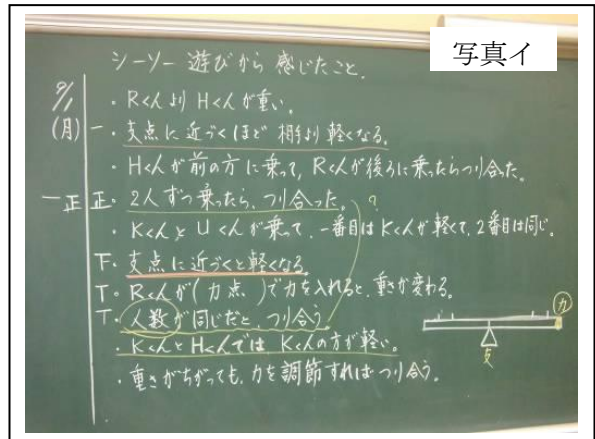 写真イ
シーソー遊びから感じたこと。
9/1
(月)
・RくんよりHくんが重い。
一・支点に近づくほど相手より軽くなる。
・Hくんが前の方に乗って,Rくんが後ろに乗ったらつり合った。
一正 正・2人ずつ乗ったら,つり合った。?
・KくんとUくんが乗って,一番目はKくんが軽くて,2番目は同じ。
下・支点に近づくと軽くなる。
T・Rくんが(力点)で力を入れると,重さが変わる。
T・人数が同じだと,つり合う。
・KくんとHくんではKくんの方が軽い。
・重さがちがっても,力を調節すればつり合う。
力
支